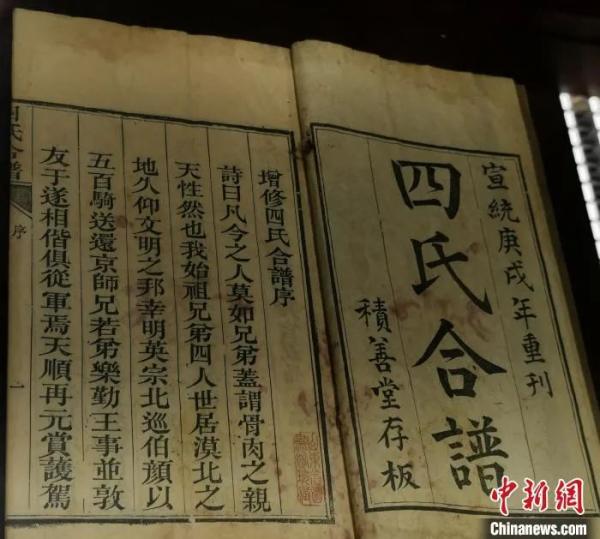 宣統庚戌年重刊
四氏合譜
積善堂存板
增修四氏合譜序
詩曰凡今之人莫如兄弟蓋謂骨肉之親
天性然也我始祖兄弟四人世居漠北之
地久仰文明之邦幸明英宗北巡伯顏以
五百騎送還京師兄若弟樂勤王事並敦
友于遂相偕俱従軍焉天順再元賞護駕
四氏合譜
序
一
中新网
Chinanews.com